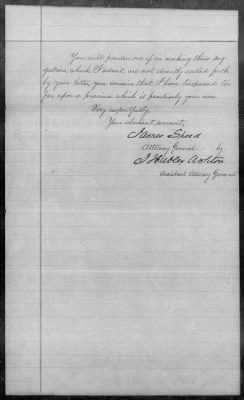 You will pardon me if in making these sug
gestions which I admit are not directly called forth
by your letter, you conceive that I have trespassed too
far upon a province which is peculiarly your own.
Very respectfully
Your obedient servant,
James Speed
Attorney General
by
J Hubley Ashton
Assistant Attorney General